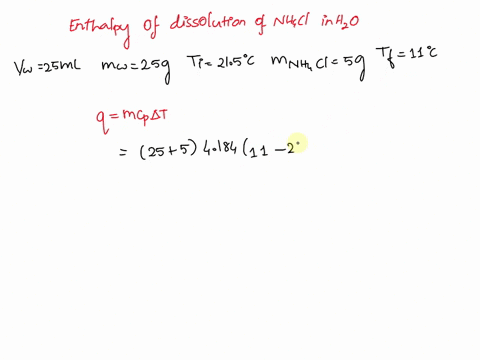 Enthalpy of dissolution of NH4Cl in H2O
Vw = 25mL mw = 25g Ti = 21.5°C mNH4Cl = 5g Tf = 11°C
q = mCpΔT
= (25+5) 4.184 (11 - 2